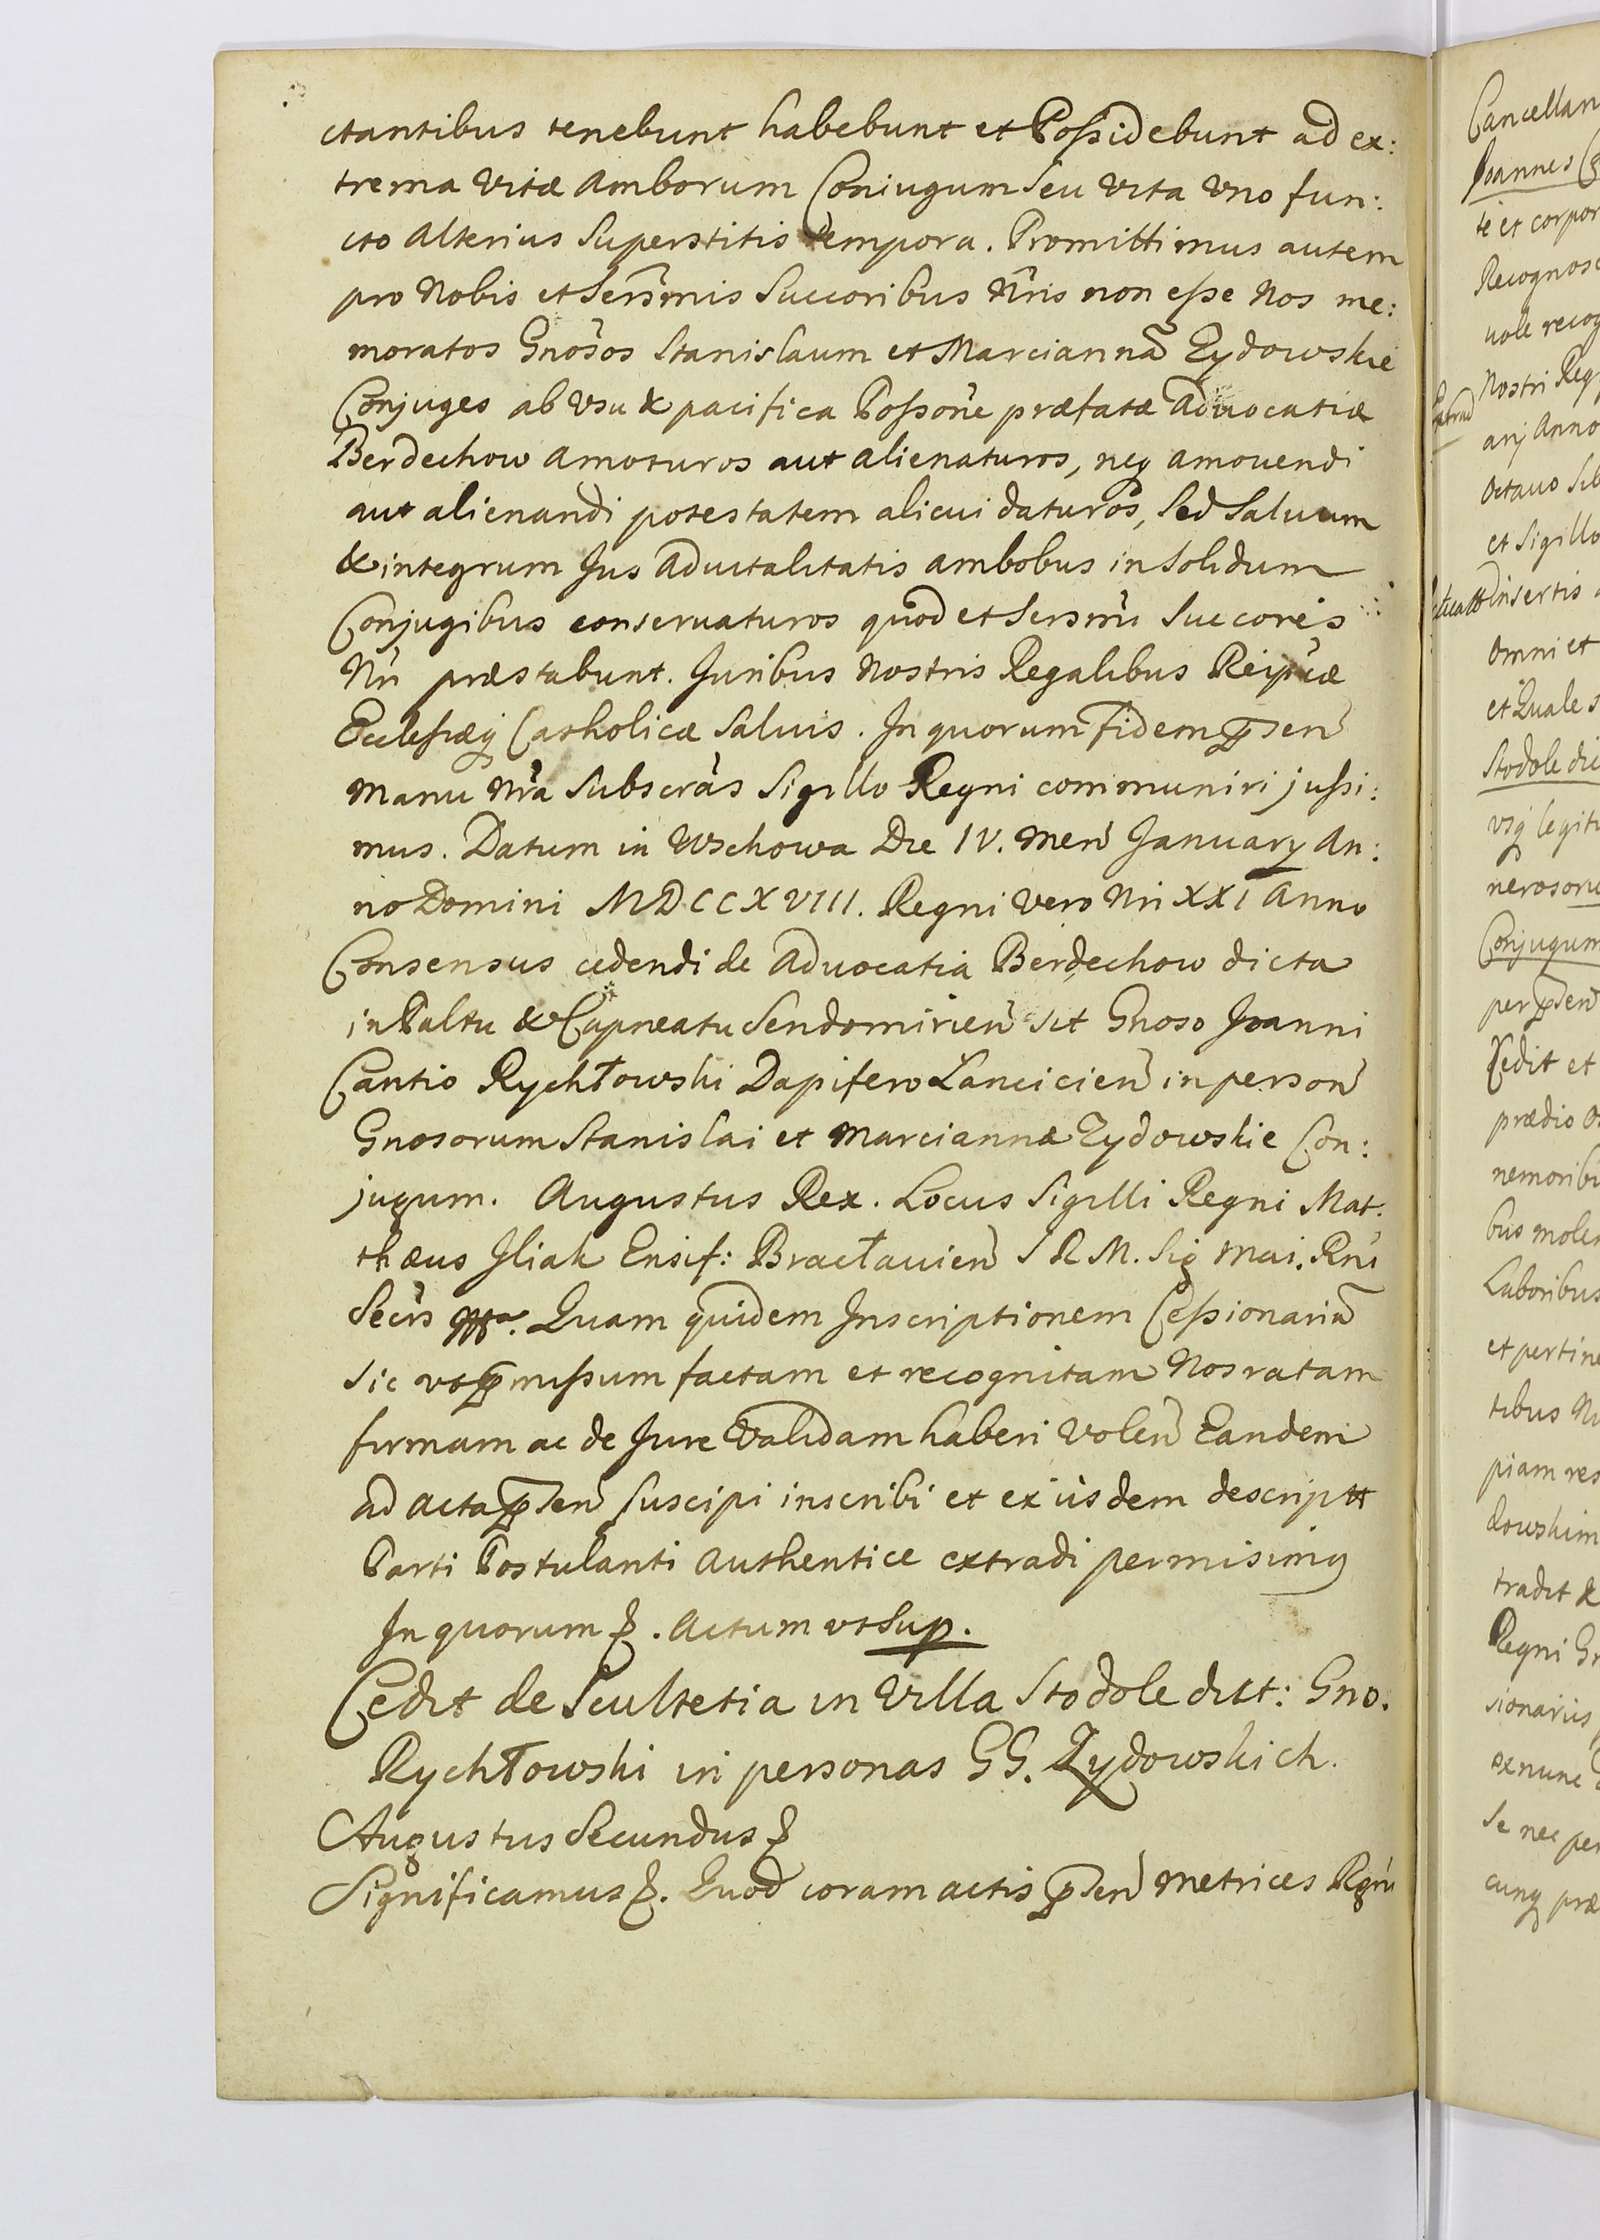 ctantibus tenebunt habebunt et Possidebunt ad ex:
trema vitæ Amborum Coniugum seu vita vno fun:
cto alterius superstitis tempora. Promittimus autem
pro Nobis et Sersmis Succoribus Nris non esse Nos me:
moratos Gnosos Stanislaum et Marciannã Zydowskie
Conjuges ab vsu & pacifica Possone præfatæ advocatiæ
Berdechow amoturos aut alienaturos, neq amouendi
aut alienandi potestatem alicui daturos, Sed Saluum
& integrum Jus aduitalitatis ambobus in Solidum
Conjugibus conseruaturos quod et Sersmi Succores
Nri præstabunt. Juribus Nostris Regalibus Reipcæ
Ecclesiæq Catholicæ Saluis. In quorum fidem psen
manu Nra Subscras Sigillo Regni communiri jussi:
mus. Datum in Wschowa Die IV. men January An:
no Domini MDCCXVIII. Regni vero Nri XXI Anno
Consensus cedendi de advocatia Berdechow dicta
in Paltu & Capneatu Sendomirien sit Gnoso Joanni
Cantio Rychłowski Dapifero Lancicien in person
Gnosorum Stanislai et Marciannæ Zydowskie Con:
jugum. Augustus Rex. Locus Sigilli Regni Mat:
thæus Jliak Ensif: Bracłavien S R M. Sig Mai. Rni
Secrs mppa. Quam quidem Inscriptionem Cessionariã
sic vt pmissum factam et recognitam Nos ratam
firmam ac de Jure validam haberi volen Eandem
ad acta psen suscipi inscribi et ex iisdem descriptt
Parti Postulanti authentice extradi permisimq
In quorum &. Actum vt Sup.
Cedit de Scultetia in Villa Stodole dict: Gno.
Rychłowski in personas GG. Zydowskich.
Augustus Secundus &
Significamus &. Quod coram actis psen Metrices Rgni
Cancellari
Joannes
te et corpor
Recognosc
uole recog
Nostri Reg
arj Anno
Octauo
et Sigillo
insertis
omni et
et Quale
Stodole dic
vsq legit
neroso
Conjugum
per psen
Cedit et
prædio
nemorib
bus mole
Laboribus
et pertine
tibus
piam res
dowskim
tradit &
Regni
sionarius
exnunc
Se nec per
cunq præ